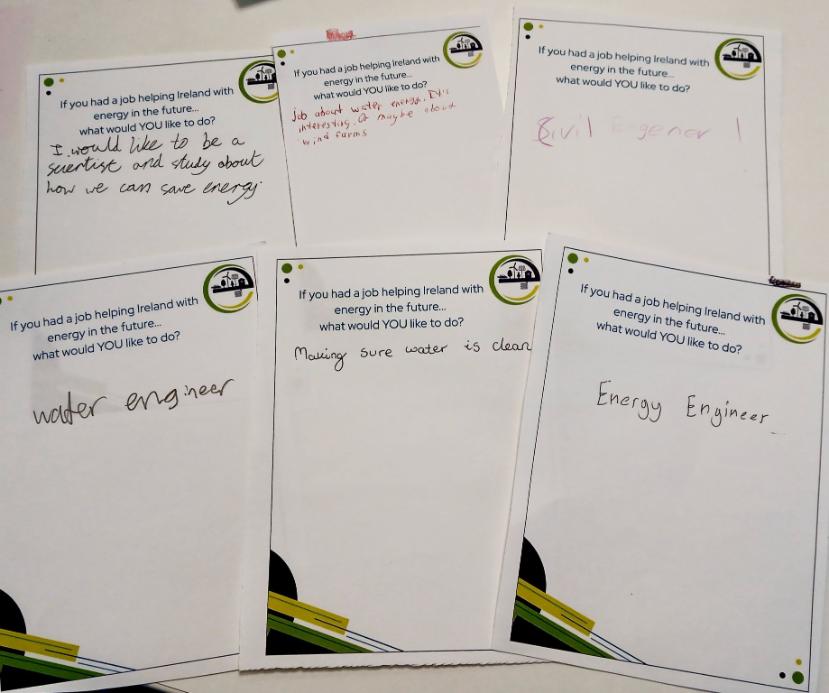 If you had a job helping Ireland with
energy in the future...
what would YOU like to do?
I would like to be a
scientist and study about
how we can save energy.
If you had a job helping Ireland with
energy in the future...
what would YOU like to do?
job about water energy. It's
interesting. Or maybe about
wind farms
If you had a job helping Ireland with
energy in the future...
what would YOU like to do?
Civil Egener
If you had a job helping Ireland with
energy in the future...
what would YOU like to do?
water engineer
If you had a job helping Ireland with
energy in the future...
what would YOU like to do?
Making sure water is clean
If you had a job helping Ireland with
energy in the future...
what would YOU like to do?
Energy Engineer